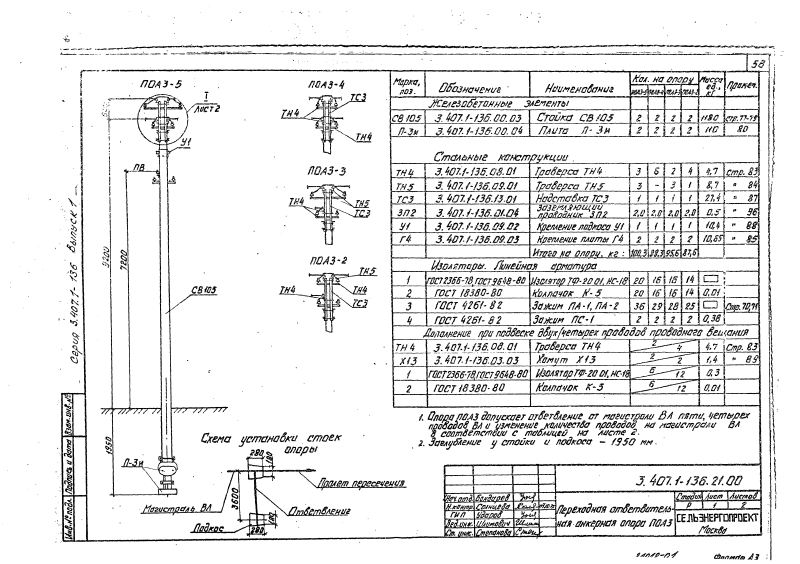 58
Серия 3.407.1-136 Выпуск 1
ПОА3-5
I
Лист 2
У1
ПВ
9200
7800
СВ105
1950
П-3и
ПОА3-4
ТН4
ТС3
ТН4
ПОА3-3
ТН5
ТН4
ТС3
ПОА3-2
ТН5
ТН4
ТН4
ТС3
Схема установки стоек опоры
280
180
3600
Пролет пересечения
Магистраль ВЛ
Ответвление
Подкос
280
Марка, поз. Обозначение Наименование Кол. на опору Масса ед., кг Примеч.
Железобетонные элементы
СВ 105 3.407.1-136.00.03 Стойка СВ 105 2 2 2 2 1180
П-3и 3.407.1-136.00.04 Плита П-3и 2 2 2 2 110 80
Стальные конструкции
ТН4 3.407.1-136.08.01 Траверса ТН4 3 6 2 4 4,7 стр. 83
ТН5 3.407.1-136.09.01 Траверса ТН5 3 - 3 1 8,7 " 84
ТС3 3.407.1-136.13.01 Надставка ТС3 1 1 1 1 27,4 " 87
ЗП2 3.407.1-136.01.04 Заземляющий проводник ЗП2 2,0 2,0 2,0 2,0 0,5 " 96
У1 3.407.1-136.09.02 Крепление подкоса У1 1 1 1 1 10,4 " 88
Г4 3.407.1-136.09.03 Крепление плиты Г4 2 2 2 2 10,65 " 85
Итого на опору, кг:
Изоляторы. Линейная арматура
1 ГОСТ 2366-78, ГОСТ 9648-80 Изолятор ТФ-20 01, НС-18 20 16 16 14
2 ГОСТ 18380-80 Колпачок К-5 20 16 16 14 0,01
3 ГОСТ 4261-82 Зажим ПА-1, ПА-2 36 29 28 25
4 ГОСТ 4261-82 Зажим ПС-1 2 2 2 2 0,38
Дополнение при подвеске двух/четырех проводов проводного вещания
ТН4 3.407.1-136.08.01 Траверса ТН4 2 4 4,7 Стр. 83
Х13 3.407.1-136.03.03 Хомут Х13 2 2 1,4 " 89
1 ГОСТ 2366-78, ГОСТ 9648-80 Изолятор ТФ-20 01, НС-18 6 12 0,3
2 ГОСТ 18380-80 Колпачок К-5 6 12 0,01
1. Опора ПОА3 допускает ответвление от магистрали ВЛ пяти, четырех
проводов ВЛ и изменение количества проводов на магистрали ВЛ
в соответствии с таблицей на листе 2.
2. Заглубление у стойки и подкоса – 1950 мм.
3.407.1-136.21.00
Нач.отд. Бондарев
Н.контр. Солнцева
ГИП Ударов
Вед.инж. Шипович
Ст. инж. Степанова
Переходная ответвительная анкерная опора ПОА3
Стадия Лист Листов
Р 1 2
СЕЛЬЭНЕРГОПРОЕКТ
Москва
Инв.№ подл. Подпись и дата Взам.инв.№
Формат А3